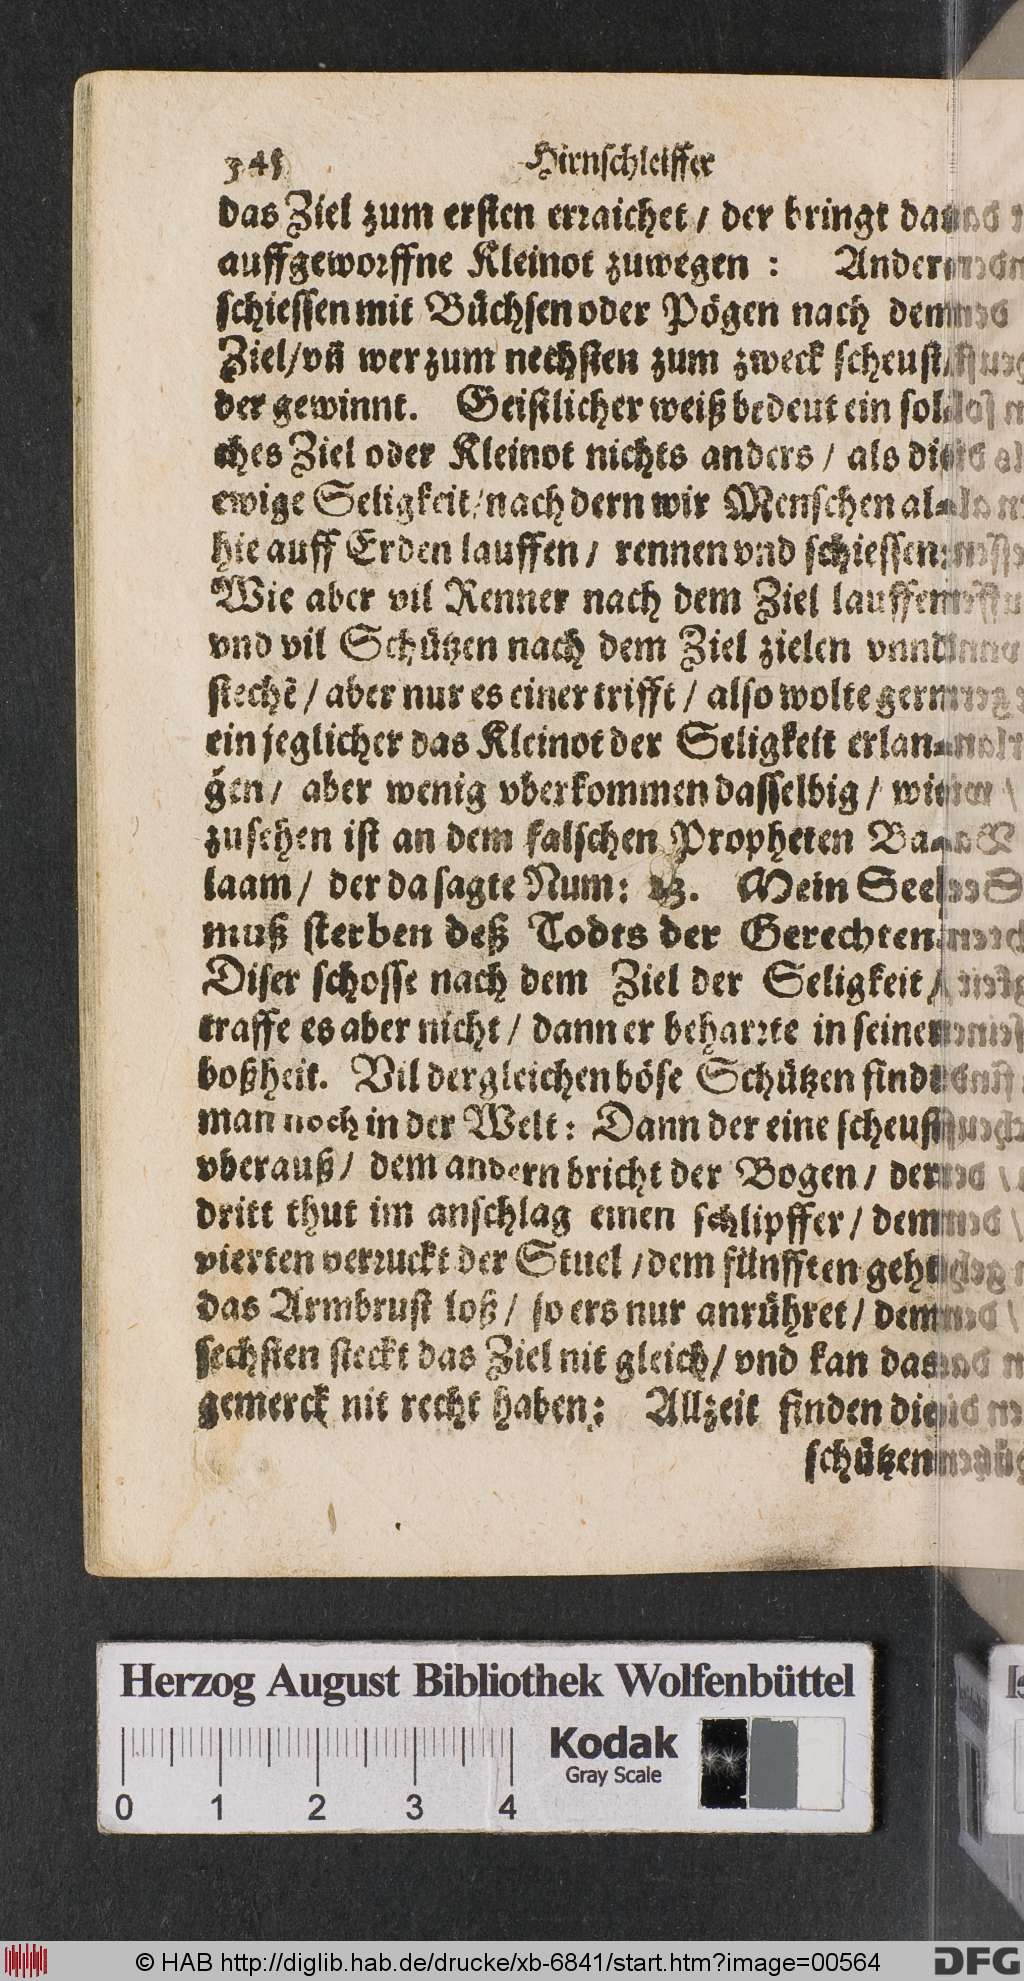 345 Hirnschleiffer
das Ziel zum ersten erraichet / der bringt das
auffgeworffne Kleinot zuwegen : Andere
schiessen mit Büchsen oder Pögen nach dem
Ziel/vñ wer zum nechsten zum zweck scheust/
der gewinnt. Geistlicher weiß bedeut ein sol-
ches Ziel oder Kleinot nichts anders / als die
ewige Seligkeit/nach dern wir Menschen al-
hie auff Erden lauffen / rennen vnd schiessen:
Wie aber vil Renner nach dem Ziel lauffen
vnd vil Schützen nach dem Ziel zielen vnnd
stechẽ / aber nur es einer trifft / also wolte gern
ein jeglicher das Kleinot der Seligkeit erlan-
gen / aber wenig vberkommen dasselbig / wie
zusehen ist an dem falschen Propheten Ba-
laam / der da sagte Num: 23. Mein Seel
muß sterben deß Todts der Gerechten.
Diser schosse nach dem Ziel der Seligkeit /
traffe es aber nicht / dann er beharrte in seiner
boßheit. Vil dergleichen böse Schützen findt
man noch in der Welt: Dann der eine scheust
vberauß / dem andern bricht der Bogen / der
dritt thut im anschlag einen schlipffer / dem
vierten verruckt der Stuel / dem fünfften geht
das Armbrust loß / so ers nur anrühret / dem
sechsten steckt das Ziel nit gleich / vnd kan das
gemerck nit recht haben: Allzeit finden die
schützen
Herzog August Bibliothek Wolfenbüttel
Kodak
Gray Scale
0 1 2 3 4
© HAB http://diglib.hab.de/drucke/xb-6841/start.htm?image=00564 DFG